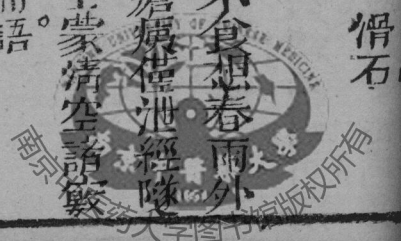 滑石
不食想春雨外
瘡廣僅泄經隧
蒙清空諸竅
用語。
南京中医药大学图书馆版权所有